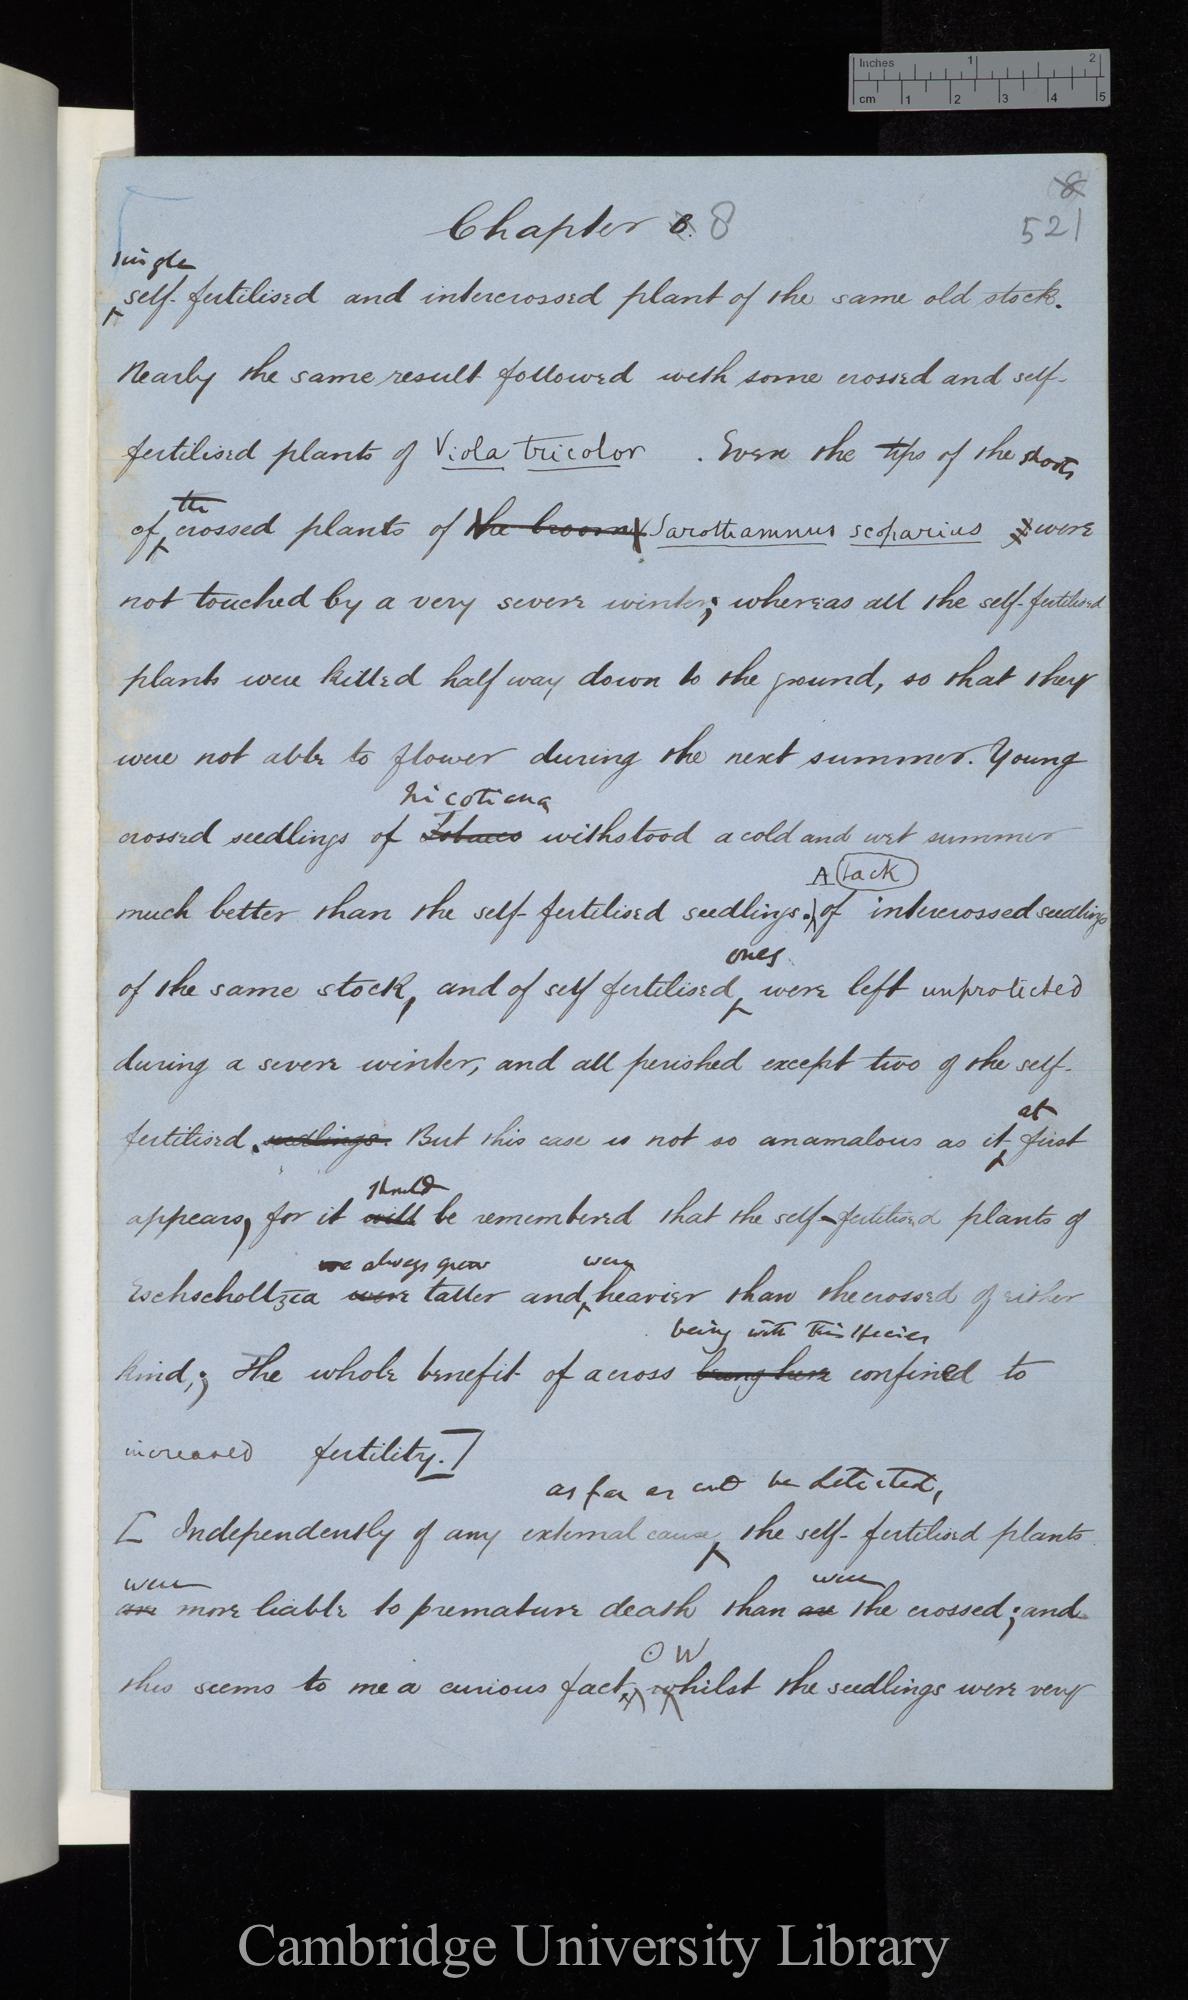 Inches 1 2
cm 1 2 3 4 5
8
Chapter 8. 8 521
single
self-fertilised and intercrossed plant of the same old stock.
Nearly the same result followed with some crossed and self-
fertilised plants of Viola tricolor . Even the tips of the shoots
the
of crossed plants of the broom Sarothamnus scoparius were
not touched by a very severe winter; whereas all the self-fertilised
plants were killed half way down to the ground, so that they
were not able to flower during the next summer. Young
Nicotiana
crossed seedlings of Tobacco withstood a cold and wet summer
A lack
much better than the self-fertilised seedlings. of intercrossed seedlings
ones
of the same stock, and of self fertilised were left unprotected
during a severe winter, and all perished except two of the self-
at
fertilised. seedlings. But this case is not so anamalous as it first
should
appears, for it will be remembered that the self-fertilised plants of
we always grew were
Eschscholtzia were taller and heavier than the crossed of either
being with this species
kind,; the whole benefit of a cross being here confined to
increased fertility.]
as far as cd be detected,
[ Independently of any external cause, the self-fertilised plants
were were
are more liable to premature death than are the crossed; and
W
this seems to me a curious fact, whilst the seedlings were very
Cambridge University Library